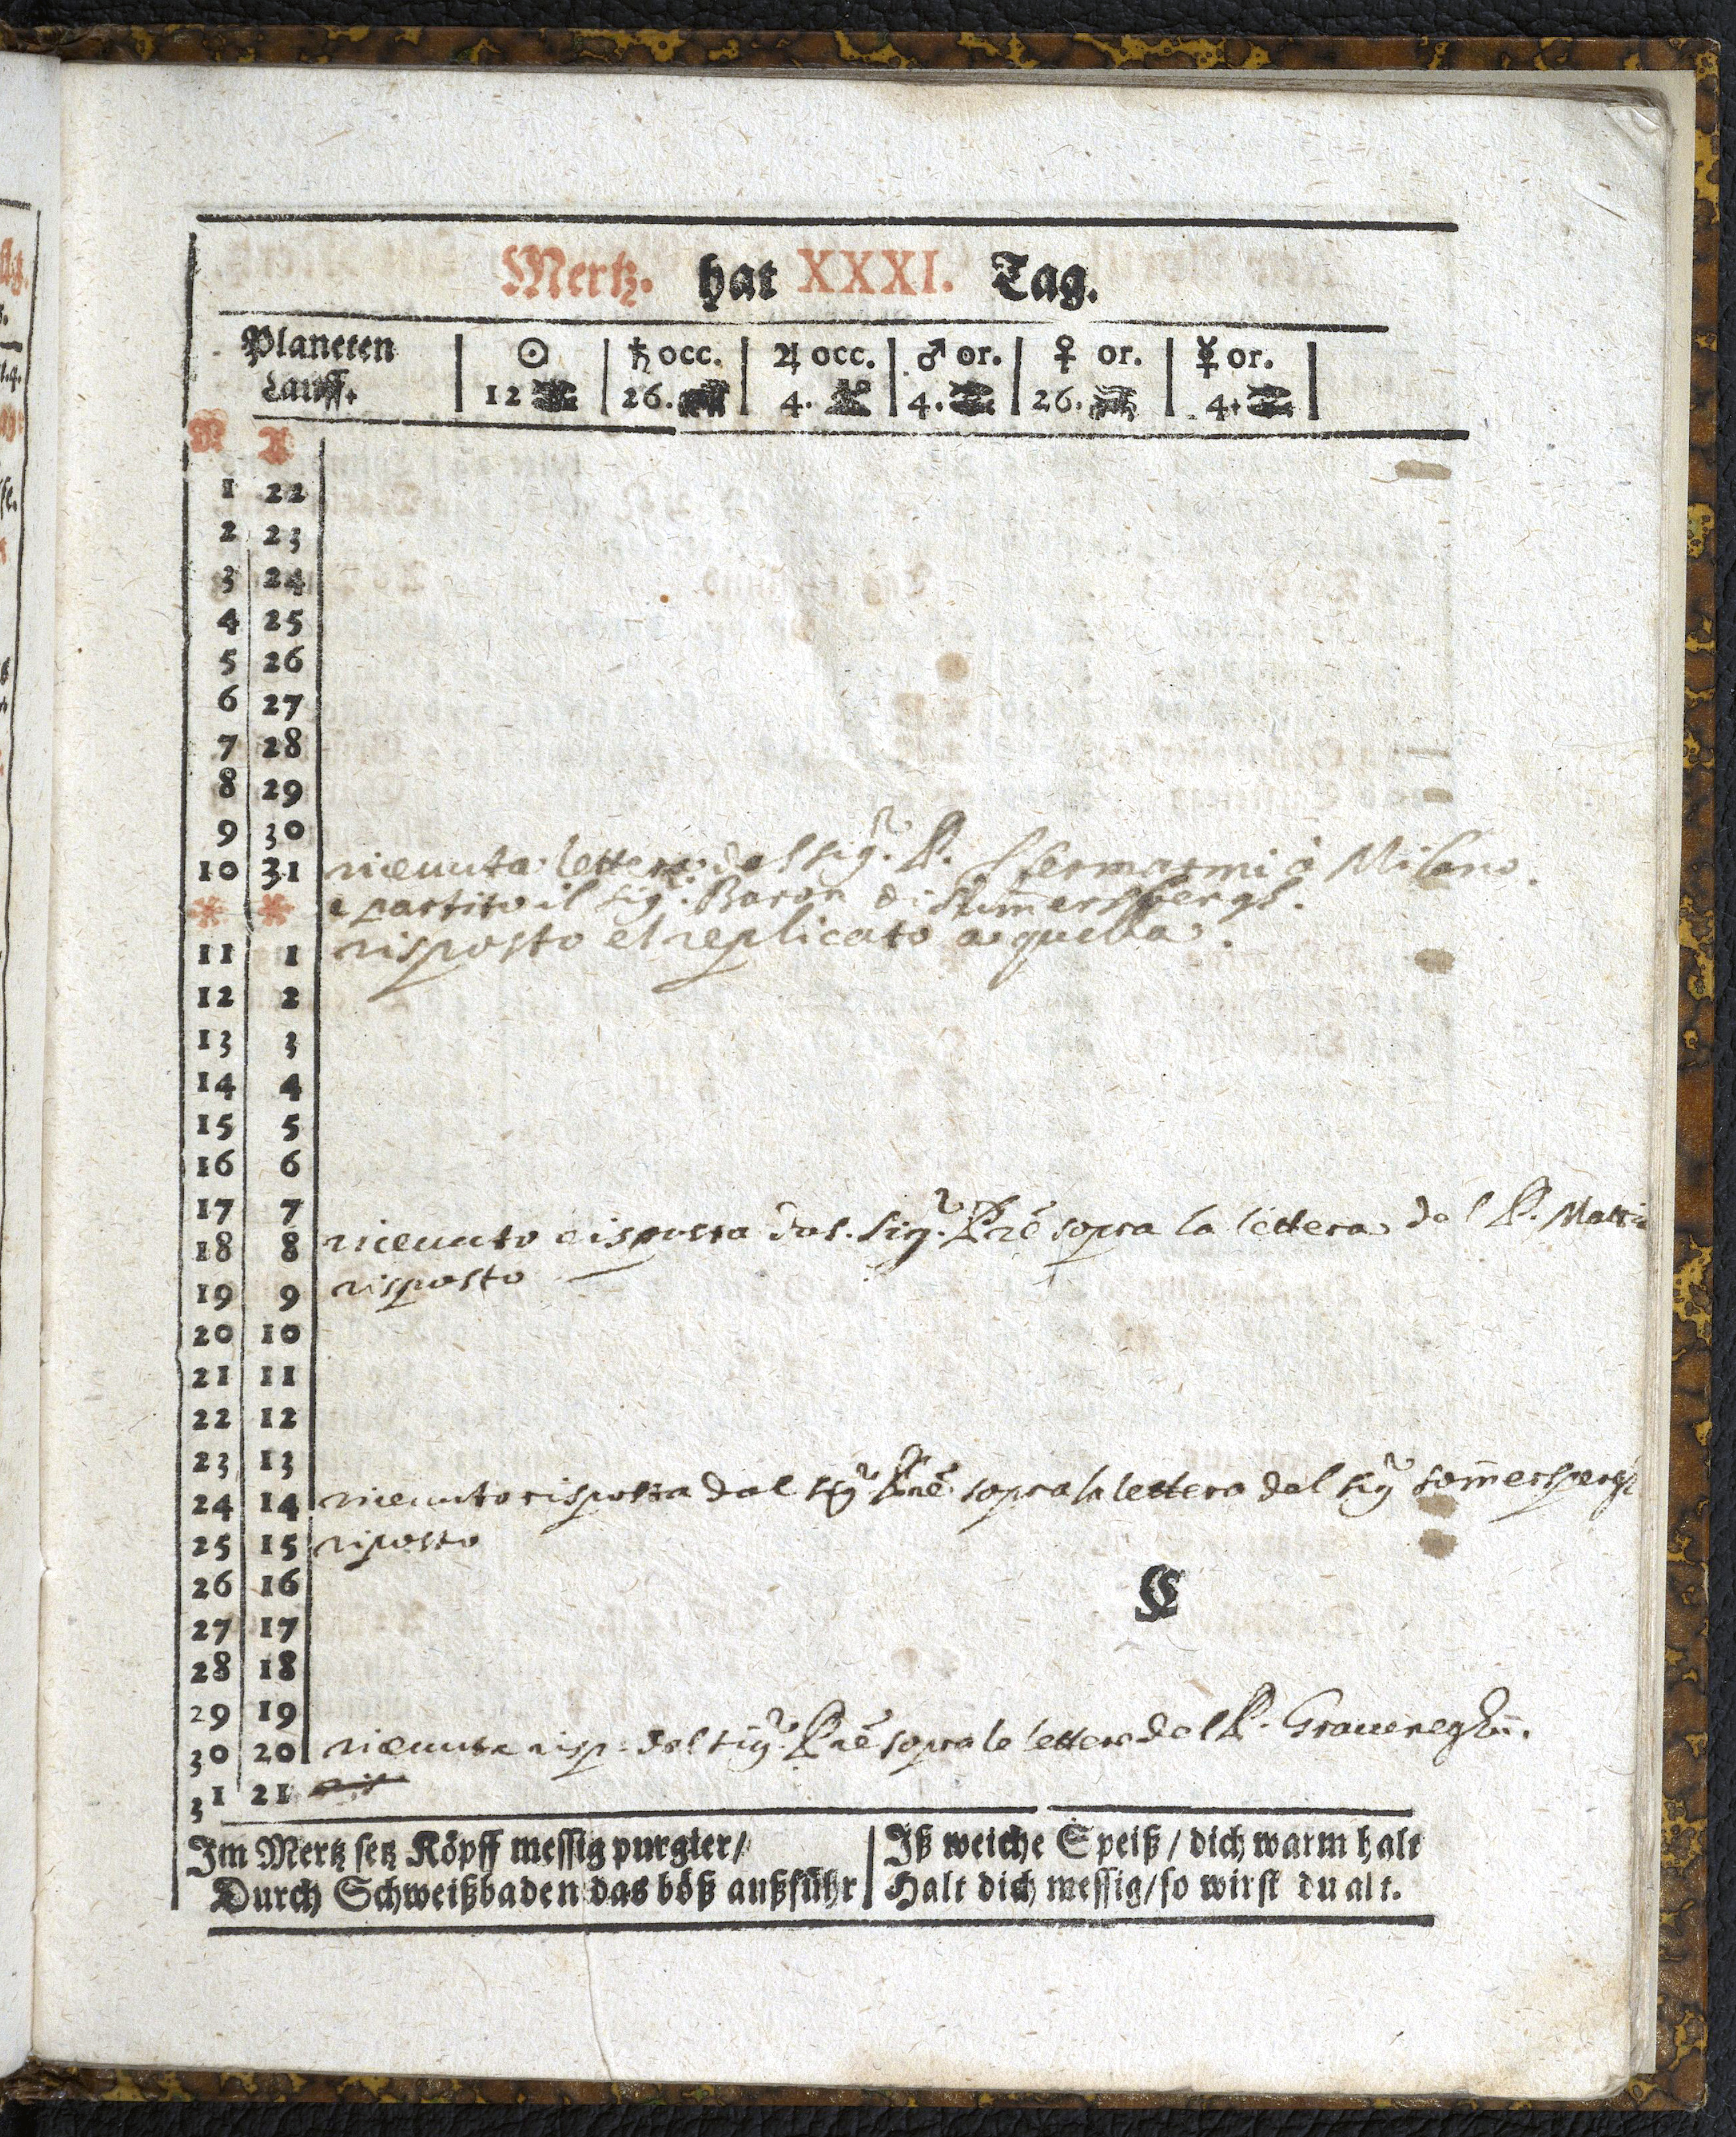 Mertz. hat XXXI. Tag.
Planeten Lauff. ☉ ♄ occ. ♃ occ. ♂ or. ♀ or. ☿ or.
12 26. 4. 4. 26. 4.
N A
1 22
2 23
3 24
4 25
5 26
6 27
7 28
8 29
9 30
10 31 riceuuta lettera dal Sigr. P. fermarmi à Milano.
* * e partito il Sigr. Baron di
11 1 risposto et replicato a quella.
12 2
13 3
14 4
15 5
16 6
17 7
18 8 riceuuto risposta dal. Sigr. Pre sopra la lettera del P.
19 9 risposto
20 10
21 11
22 12
23 13
24 14 riceuuto risposta dal Sigr Pre sopra la lettera del Sigr Som̄ersperg
25 15 riposto
26 16
27 17
28 18
29 19
30 20 riceuuta risp. dal Sigr. Pre sopra le lettere del P.
31 21 ris
Im Mertz setz Köpff messig purgier/
Durch Schweißbaden das böß außführ
Iß weiche Speiß / dich warm halt
Halt dich messig/so wirst du alt.